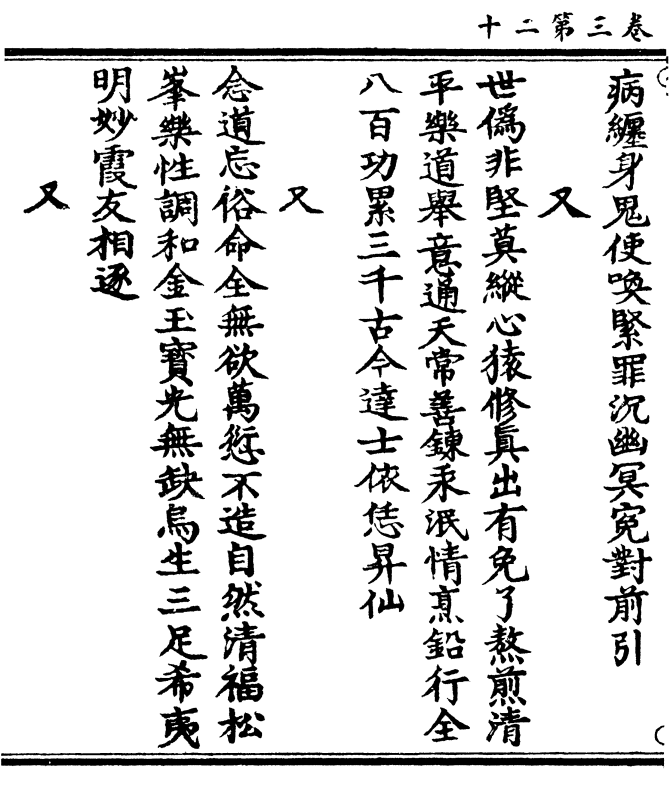 卷三第二十
病纏身鬼使喚緊罪沉幽冥寃對前引
又
世僞非堅莫縱心猿修眞出有免了熬煎清
平樂道舉意通天常善鍊汞泯情烹鉛行全
八百功累三千古今達士依恁昇仙
又
念道忘俗命全無欲萬愆不造自然清福松
峯樂性調和金玉寶光無缺烏生三足希夷
明妙霞友相逐
又